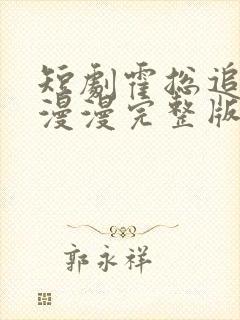 短劇霍総追
漫漫完整版
郭永祥